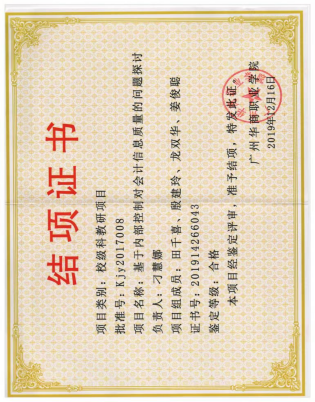 结项证书
项目类别：校级科教研项目
批准号：Kjy2017008
项目名称：基于内部控制对会计信息质量的问题探讨
负责人：刁慧娜
项目组成员：田千喜、殷建玲、龙双华、姜俊聪
证书号：201914266043
鉴定等级：合格
本项目经鉴定评审，准予结项，特发此证。
广州华商职业学院
2019年12月16日